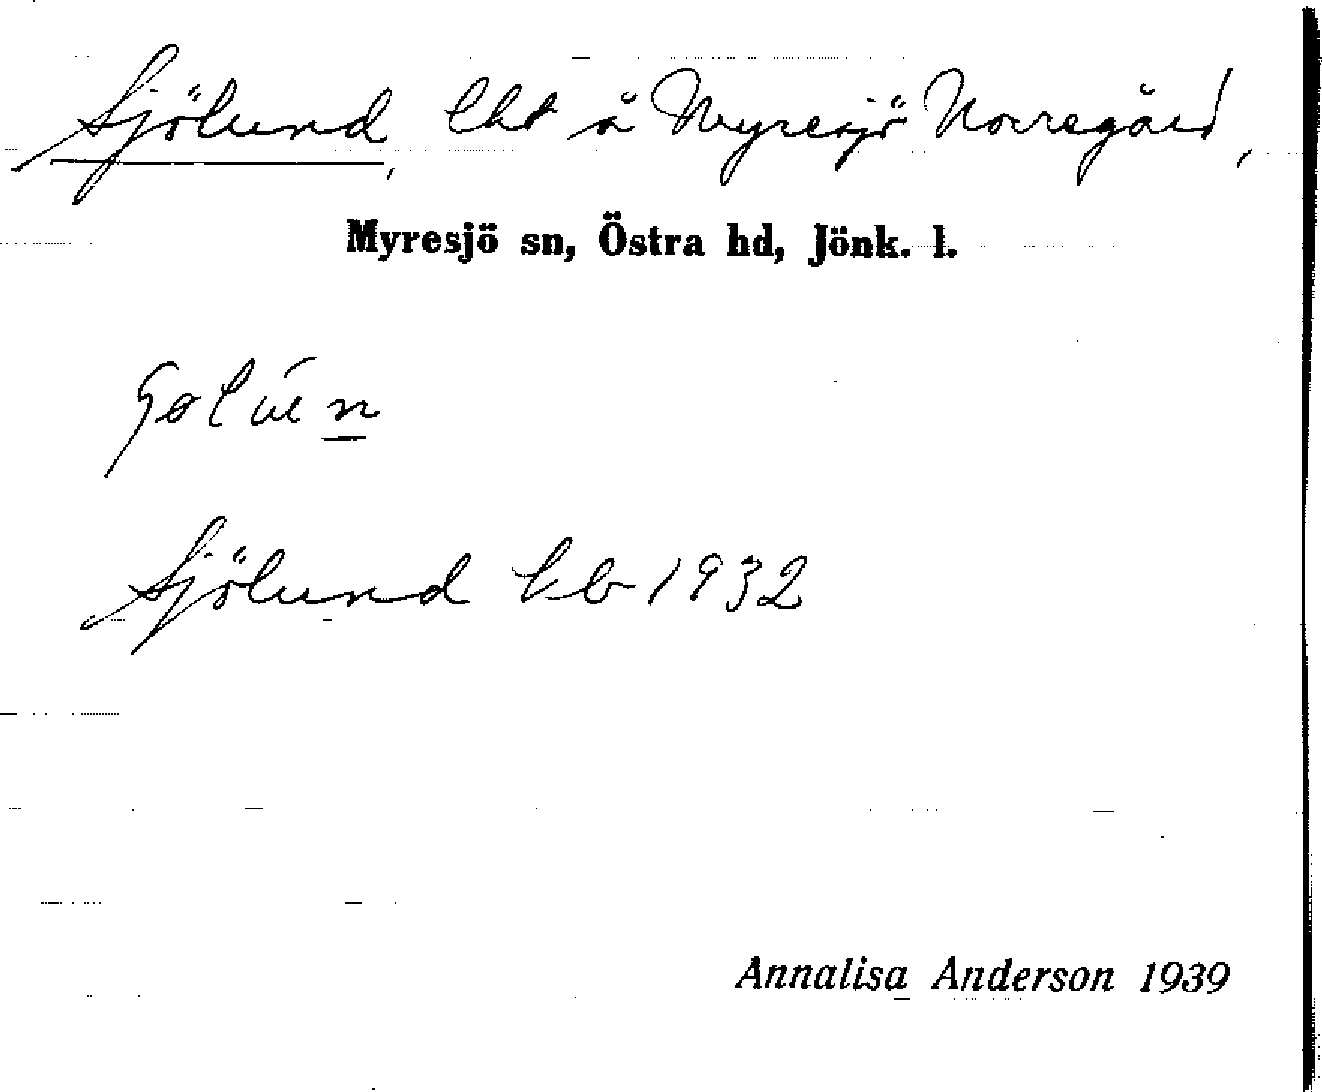 Sjölund, lht å Myresjö Norregård,
Myresjö sn, Östra hd, Jönk. l.
Sjölund kb 1932
Annalisa Anderson 1939